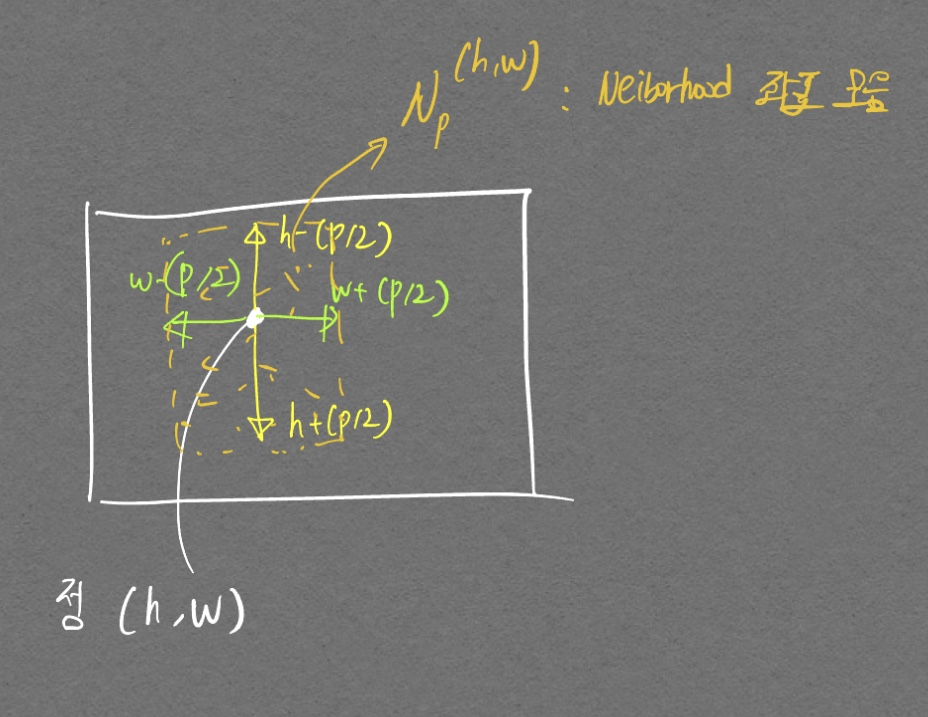 N_p^(h,w) : Neiborhood 좌표 모음
h-(p/2)
w-(p/2)
w+(p/2)
h+(p/2)
점 (h,w)